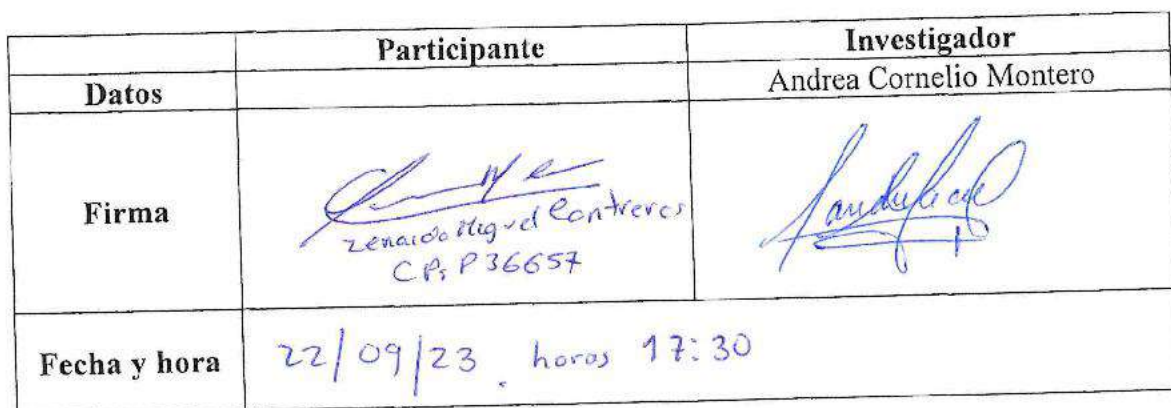 Participante Investigador
Datos Andrea Cornelio Montero
Firma
Zenaida Miguel Contreras
CPsP 36657
Fecha y hora 22/09/23. horas 17:30